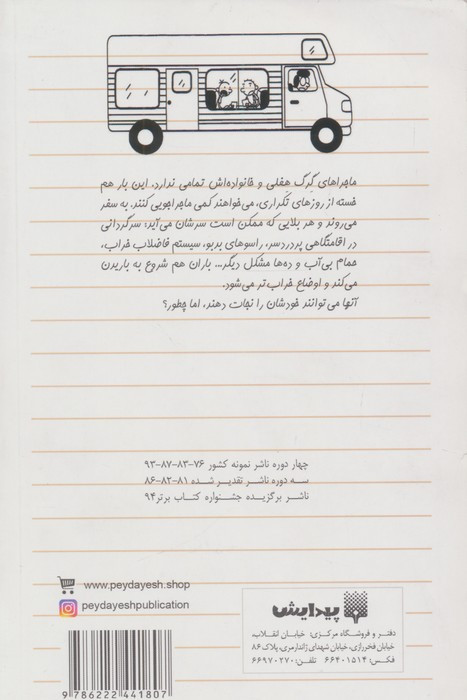 ماجراهای گرگ هفلی و خانواده‌اش تمامی ندارد. این بار هم
خسته از روزهای تکراری، می‌خواهند کمی ماجراجویی کنند. به سفر
می‌روند و هر بلایی که ممکن است سرشان می‌آید: سرگردانی
در اقامتگاهی پردردسر، راسوهای بدبو، سیستم فاضلاب خراب،
حمام بی‌آب و ده‌ها مشکل دیگر... باران هم شروع به باریدن
می‌کند و اوضاع خراب‌تر می‌شود.
آنها می‌توانند خودشان را نجات دهند، اما چطور؟
چهار دوره ناشر نمونه کشور ۷۶-۸۳-۸۷-۹۳
سه دوره ناشر تقدیر شده ۸۱-۸۲-۸۶
ناشر برگزیده جشنواره کتاب برتر ۹۴
www.peydayesh.shop
peydayeshpublication
پیدایش
دفتر و فروشگاه مرکزی: خیابان انقلاب،
خیابان فخررازی، خیابان شهدای ژاندارمری، پلاک ۸۶
فکس: ۶۶۴۰۱۵۱۴ تلفن: ۶۶۹۷۰۲۷۰
9 786222 441807